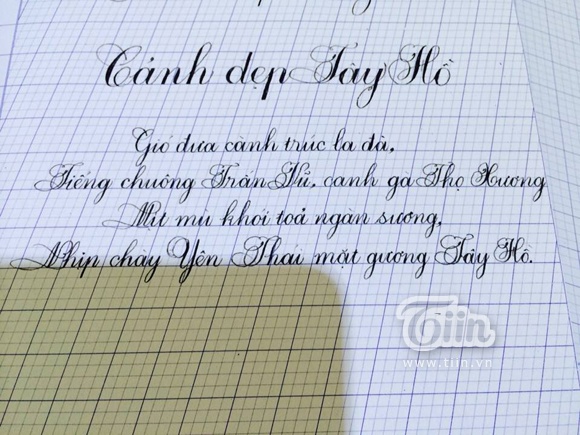 Cảnh đẹp Tây Hồ
Gió đưa cành trúc la đà,
Tiếng chuông Trấn Vũ, canh gà Thọ Xương
Mịt mù khói toả ngàn sương,
Nhịp chày Yên Thái mặt gương Tây Hồ.
Tiin
www.tiin.vn